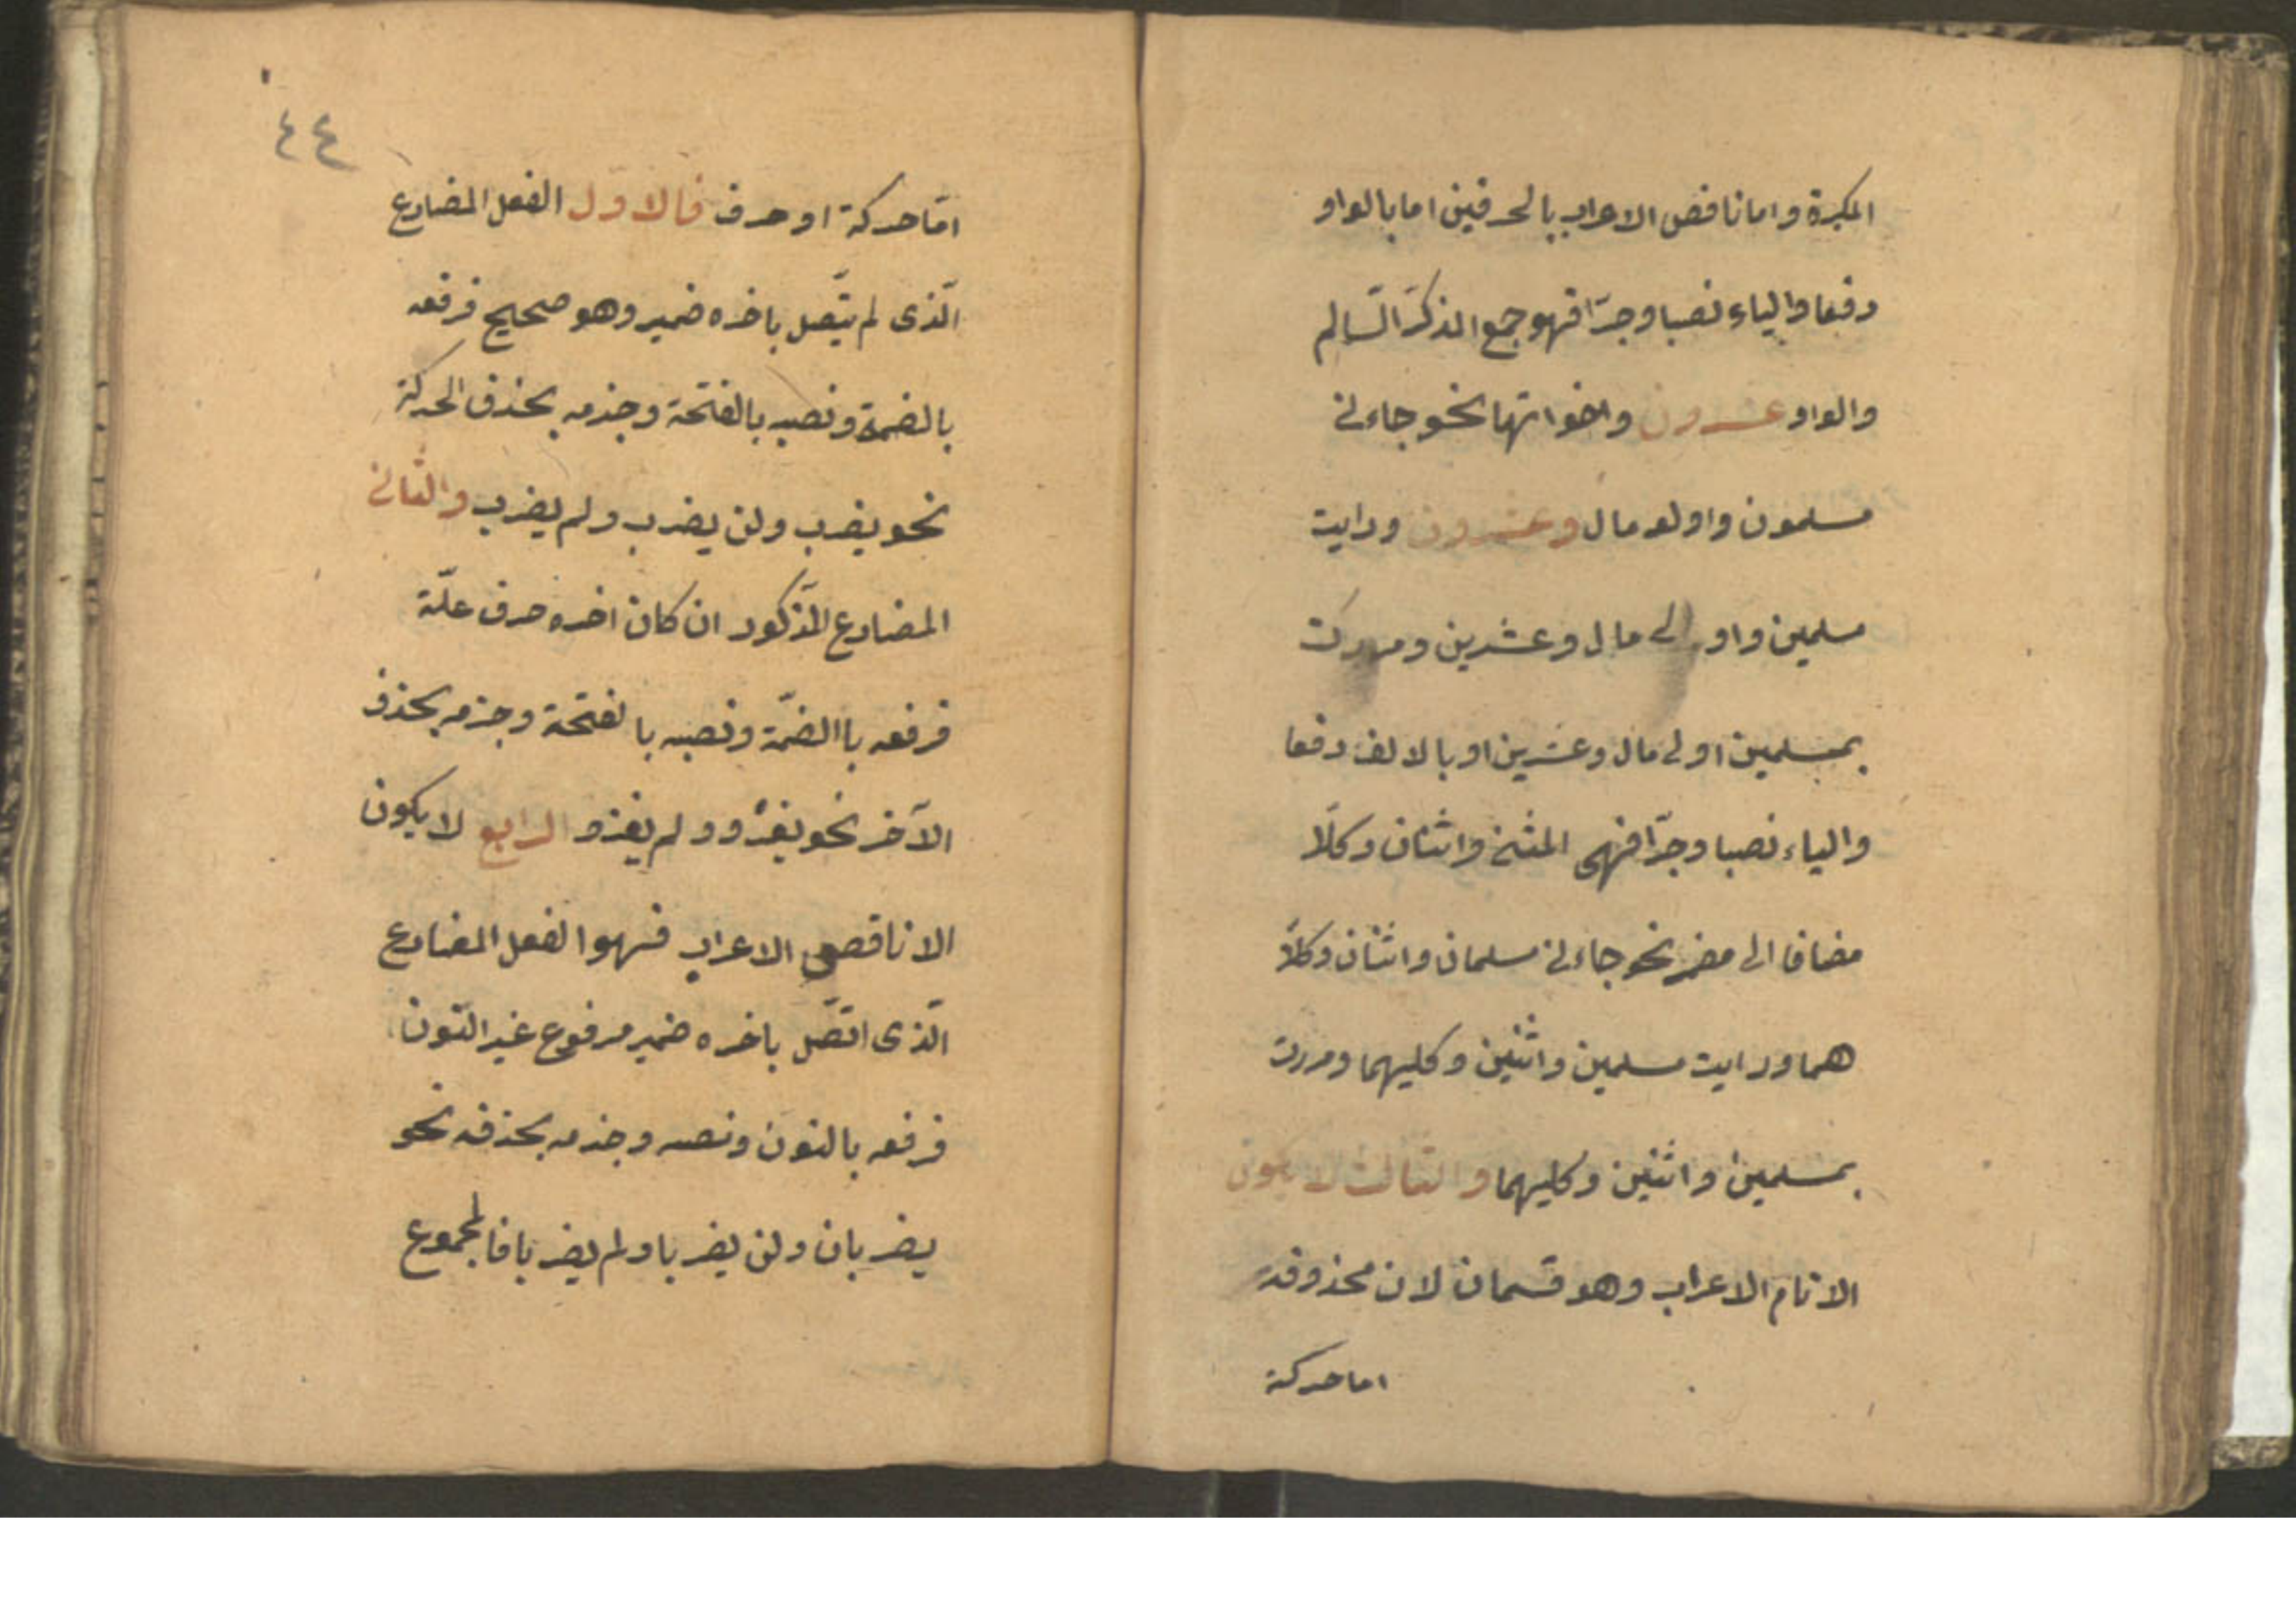 المكبرة واما ناقص الاعراب بالحرفين اما بالواو
رفعا والياء نصبا وجرّا فهو جمع المذكر السّالم
والواو عشرون واخواتها نحو جاءنى
مسلمون واولو مال وعشرون ورايت
مسلمين واولى مال وعشرين ومررت
بمسلمين اولى مال وعشرين او بالالف رفعا
والياء نصبا وجرّا فهى المثنى واثنان وكلا
مضافا الى مضمر نحو جاءنى مسلمان واثنان وكلا
هما ورايت مسلمين واثنين وكليهما ومررت
بمسلمين واثنين وكليهما والثالث لا يكون
الا تام الاعراب وهو قسمان لان محذوفه
اما حركة
٤٤
امّا حركة او حرف فالاول الفعل المضارع
الّذى لم يتّصل باخره ضمير وهو صحيح فرفعه
بالضمة ونصبه بالفتحة وجزمه بحذف الحركة
نحو يضرب ولن يضرب ولم يضرب والثانى
المضارع المذكور ان كان اخره حرف علّة
فرفعه باالضمّة ونصبه بالفتحة وجزمه بحذف
الآخر نحو يغزو ولم يغزو الرابع لا يكون
الا ناقص الاعراب فهو الفعل المضارع
الّذى اتّصل باخره ضمير مرفوع غير النّون
فرفعه بالنون ونصبه وجزمه بحذفه نحو
يضربان ولن يضربا ولم يضربا فالمجموع